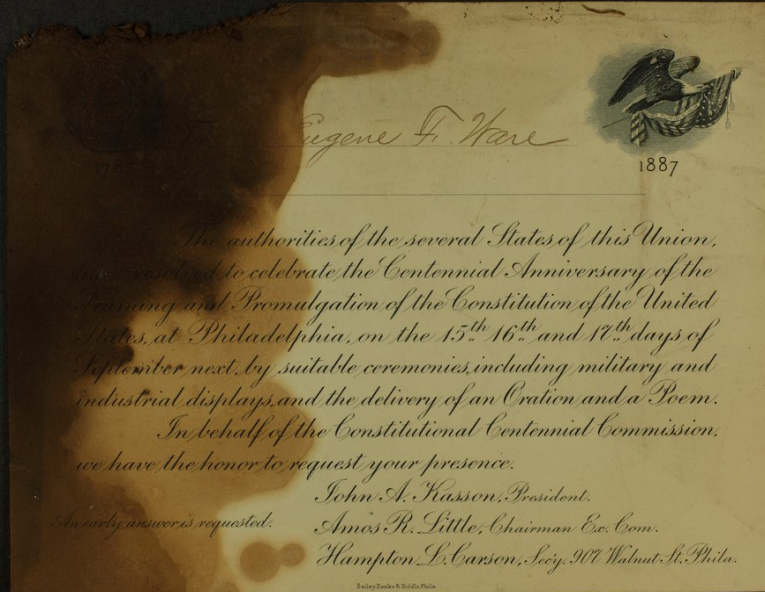 Eugene F. Ware
1887
The authorities of the several States of this Union,
resolved to celebrate the Centennial Anniversary of the
Framing and Promulgation of the Constitution of the United
States, at Philadelphia, on the 15th 16th and 17th days of
September next, by suitable ceremonies, including military and
industrial displays, and the delivery of an Oration and a Poem.
In behalf of the Constitutional Centennial Commission,
we have the honor to request your presence.
John A. Kasson, President.
An early answer is requested.
Amos R. Little, Chairman Ex. Com.
Hampton L. Carson, Secy. 907 Walnut St. Phila.
Bailey Banks & Biddle Phila.